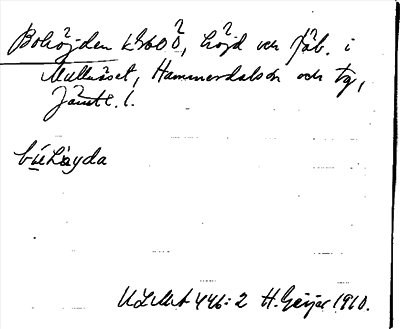 Bohöjden k3600, höjd och fäb. i
Mellnäset, Hammerdals sn och tg,
Jämtl. l.
búhəyda
ULMA 446:2 H. Geijer 1910.